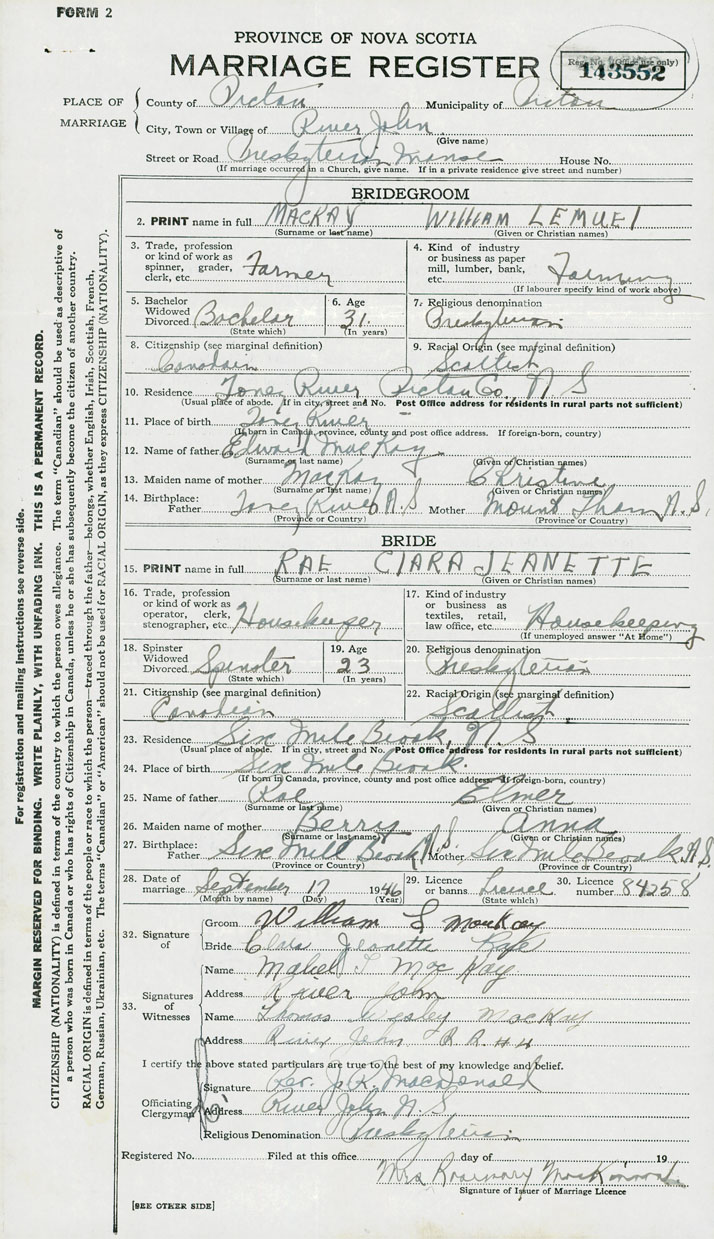 FORM 2
PROVINCE OF NOVA SCOTIA
MARRIAGE REGISTER
Reg. No. (Office use only)
143552
PLACE OF MARRIAGE
County of Pictou Municipality of Pictou
City, Town or Village of River John
(Give name)
Street or Road Presbyterian Manse House No.
(If marriage occurred in a Church, give name. If in a private residence give street and number)
BRIDEGROOM
2. PRINT name in full MACKAY WILLIAM LEMUEL
(Surname or last name) (Given or Christian names)
3. Trade, profession or kind of work as spinner, grader, clerk, etc. Farmer
4. Kind of industry or business as paper mill, lumber, bank, etc. Farming
(If labourer specify kind of work above)
5. Bachelor Widowed Divorced Bachelor
(State which)
6. Age 31
(In years)
7. Religious denomination
Presbyterian
8. Citizenship (see marginal definition)
Canadain
9. Racial Origin (see marginal definition)
Scottish
10. Residence Toney River Pictou Co, N S
(Usual place of abode. If in city, street and No. Post Office address for residents in rural parts not sufficient)
11. Place of birth Toney River
(If born in Canada, province, county and post office address. If foreign-born, country)
12. Name of father Edward MacKay
(Surname or last name) (Given or Christian names)
13. Maiden name of mother MacKay Christine
(Surname or last name) (Given or Christian names)
14. Birthplace: Father Toney River N.S Mother Mount Thom N.S.
(Province or Country) (Province or Country)
BRIDE
15. PRINT name in full RAE CLARA JEANETTE
(Surname or last name) (Given or Christian names)
16. Trade, profession or kind of work as operator, clerk, stenographer, etc. Housekeeper
17. Kind of industry or business as textiles, retail, law office, etc. Housekeeping
(If unemployed answer "At Home")
18. Spinster Widowed Divorced Spinster
(State which)
19. Age 23
(In years)
20. Religious denomination
Presbyterian
21. Citizenship (see marginal definition)
Canadian
22. Racial Origin (see marginal definition)
Scottish
23. Residence Six Mile Brook, N. S
(Usual place of abode. If in city, street and No. Post Office address for residents in rural parts not sufficient)
24. Place of birth Six Mile Brook.
(If born in Canada, province, county and post office address. If foreign-born, country)
25. Name of father Rae Elmer
(Surname or last name) (Given or Christian names)
26. Maiden name of mother Berry Anna
(Surname or last name) (Given or Christian names)
27. Birthplace: Father Six Mile Brook N.S. Mother Six Mile Brook N.S.
(Province or Country) (Province or Country)
28. Date of marriage September 17 1946
(Month by name) (Day) (Year)
29. Licence or banns Licence
(State which)
30. Licence number 84258
32. Signature of
Groom William L MacKay
Bride Clara Jeanette Rae
33. Signatures of Witnesses
Name Mabel T MacKay
Address River John
Name Thomas Wesley MacKay
Address River John R.R. #4
I certify the above stated particulars are true to the best of my knowledge and belief.
Officiating Clergyman
Signature Rev. J. R. MacDonald
Address River John N.S
Religious Denomination Presbyterian
Registered No. Filed at this office day of 19
Mrs Rosemary
Signature of Issuer of Marriage Licence
[SEE OTHER SIDE]
For registration and mailing instructions see reverse side.
MARGIN RESERVED FOR BINDING. WRITE PLAINLY, WITH UNFADING INK. THIS IS A PERMANENT RECORD.
CITIZENSHIP (NATIONALITY) is defined in terms of the country to which the person owes allegiance. The term "Canadian" should be used as descriptive of
a person who was born in Canada or who has rights of Citizenship in Canada, unless he or she has subsequently become the citizen of another country.
RACIAL ORIGIN is defined in terms of the people or race to which the person—traced through the father—belongs, whether English, Irish, Scottish, French,
German, Russian, Ukrainian, etc. The terms "Canadian" or "American" should not be used for RACIAL ORIGIN, as they express CITIZENSHIP (NATIONALITY).